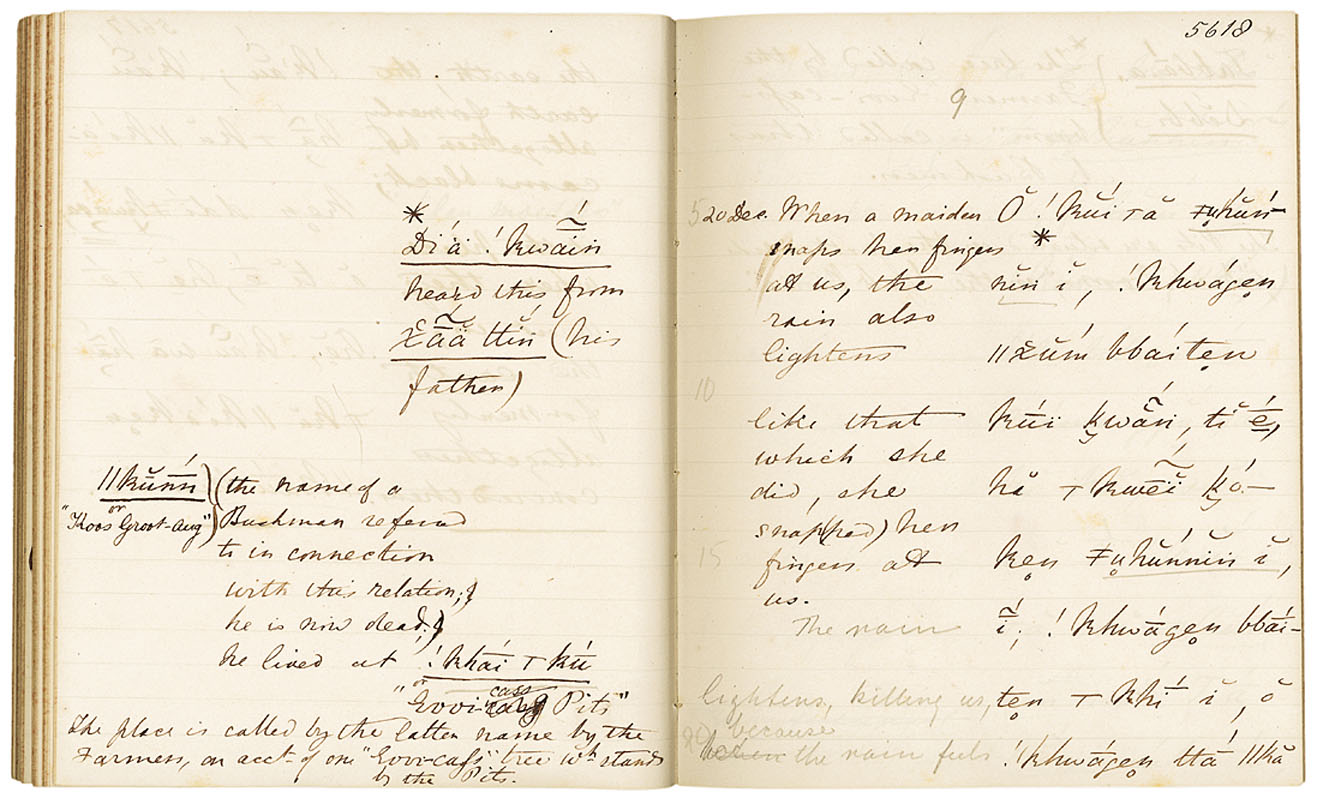 *
Dĭ´ä ! kwã́ín
heard this from
χã́ä ttĭń (his
father)
||kŭnń) (the name of a
or
"Koos Groot-Aug") Bushman referred
to in connection
with this relation;
he is now dead;)
he lived at ! kháï т kú
or cass
"Govi- Pits"
The place is called by the latter name by the
Farmers, on acct. of one "Govi-cass" tree wh. stands
by the Pits.
5618
9
5 20 Dec. When a maiden Ŏ ! kŭ́i т ă
snaps her fingers *
at us, the nĭn ĭ, ! khwā́gen
rain also
lightens ||χŭḿ bbáïten
10
like that kúï kwãń, tĭ é,
which she
did, she hă т kwẽ́ï kó-
snap(ped) her
15 fingers at ken ĭ,
us.
The rain ĩ́; ! khwā́gen bbáï-
lightens, killing us, ten т khĭ́ ĭ, ŏ
because
20 the rain feels ! khwā́gen ttá ||kă